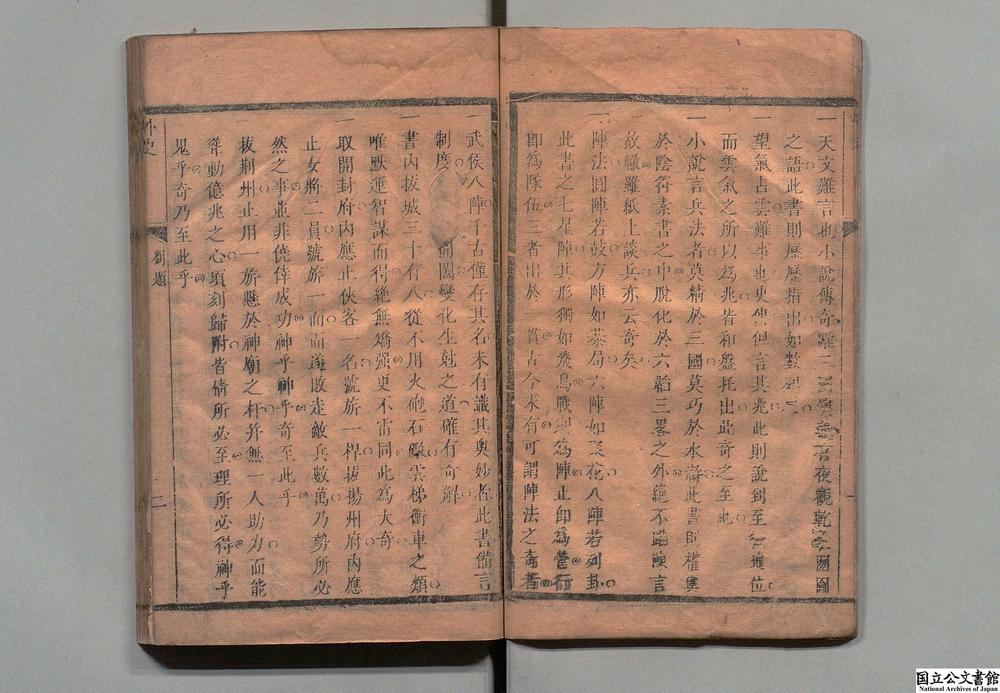 一天文難言也小說傳奇雖三 夜觀乾象囫圇
之語此書則歷歷指出如數
一望氣占雲難事也更僕但言其兆此則說到至 地位
而雲氣之所以為兆皆和盤托出此奇之至也
一小說言兵法者莫精於三國莫巧於水滸此書則權輿
於陰符素書之中脫化於六韜三畧之外絶不蹈陳言
故轍雖紙上談兵亦云奇矣
一陣法圓陣若鼓方陣如棊局六陣如 花八陣若列卦
此書之七星陣其形獨如飛鳥戰卽為陣止卽為營行
卽為隊伍三者出於一貫古今未有可謂陣法之奇者
一武侯八陣千古僅存其名未有識其奧妙者此書備言
制度 開闔變化生尅之道確有奇解
一書內拔城三十有八從不用火砲石 雲梯衝車之類
唯默運智謀而得絶無矯强更不雷同此為大奇
一取開封府內應止俠客一名號旂一桿拔揚州府內應
止女將二員號旂一面而遂敗走敵兵數萬乃勢所必
然之事並非僥倖成功神乎神乎奇至此乎
一拔荆州止用一旂懸於神廟之杆并無一人助力而能
聳動億兆之心頃刻歸附皆情所必至理所必得神乎
鬼乎奇乃至此乎
外史
劉題
二
国立公文書館
National Archives of Japan